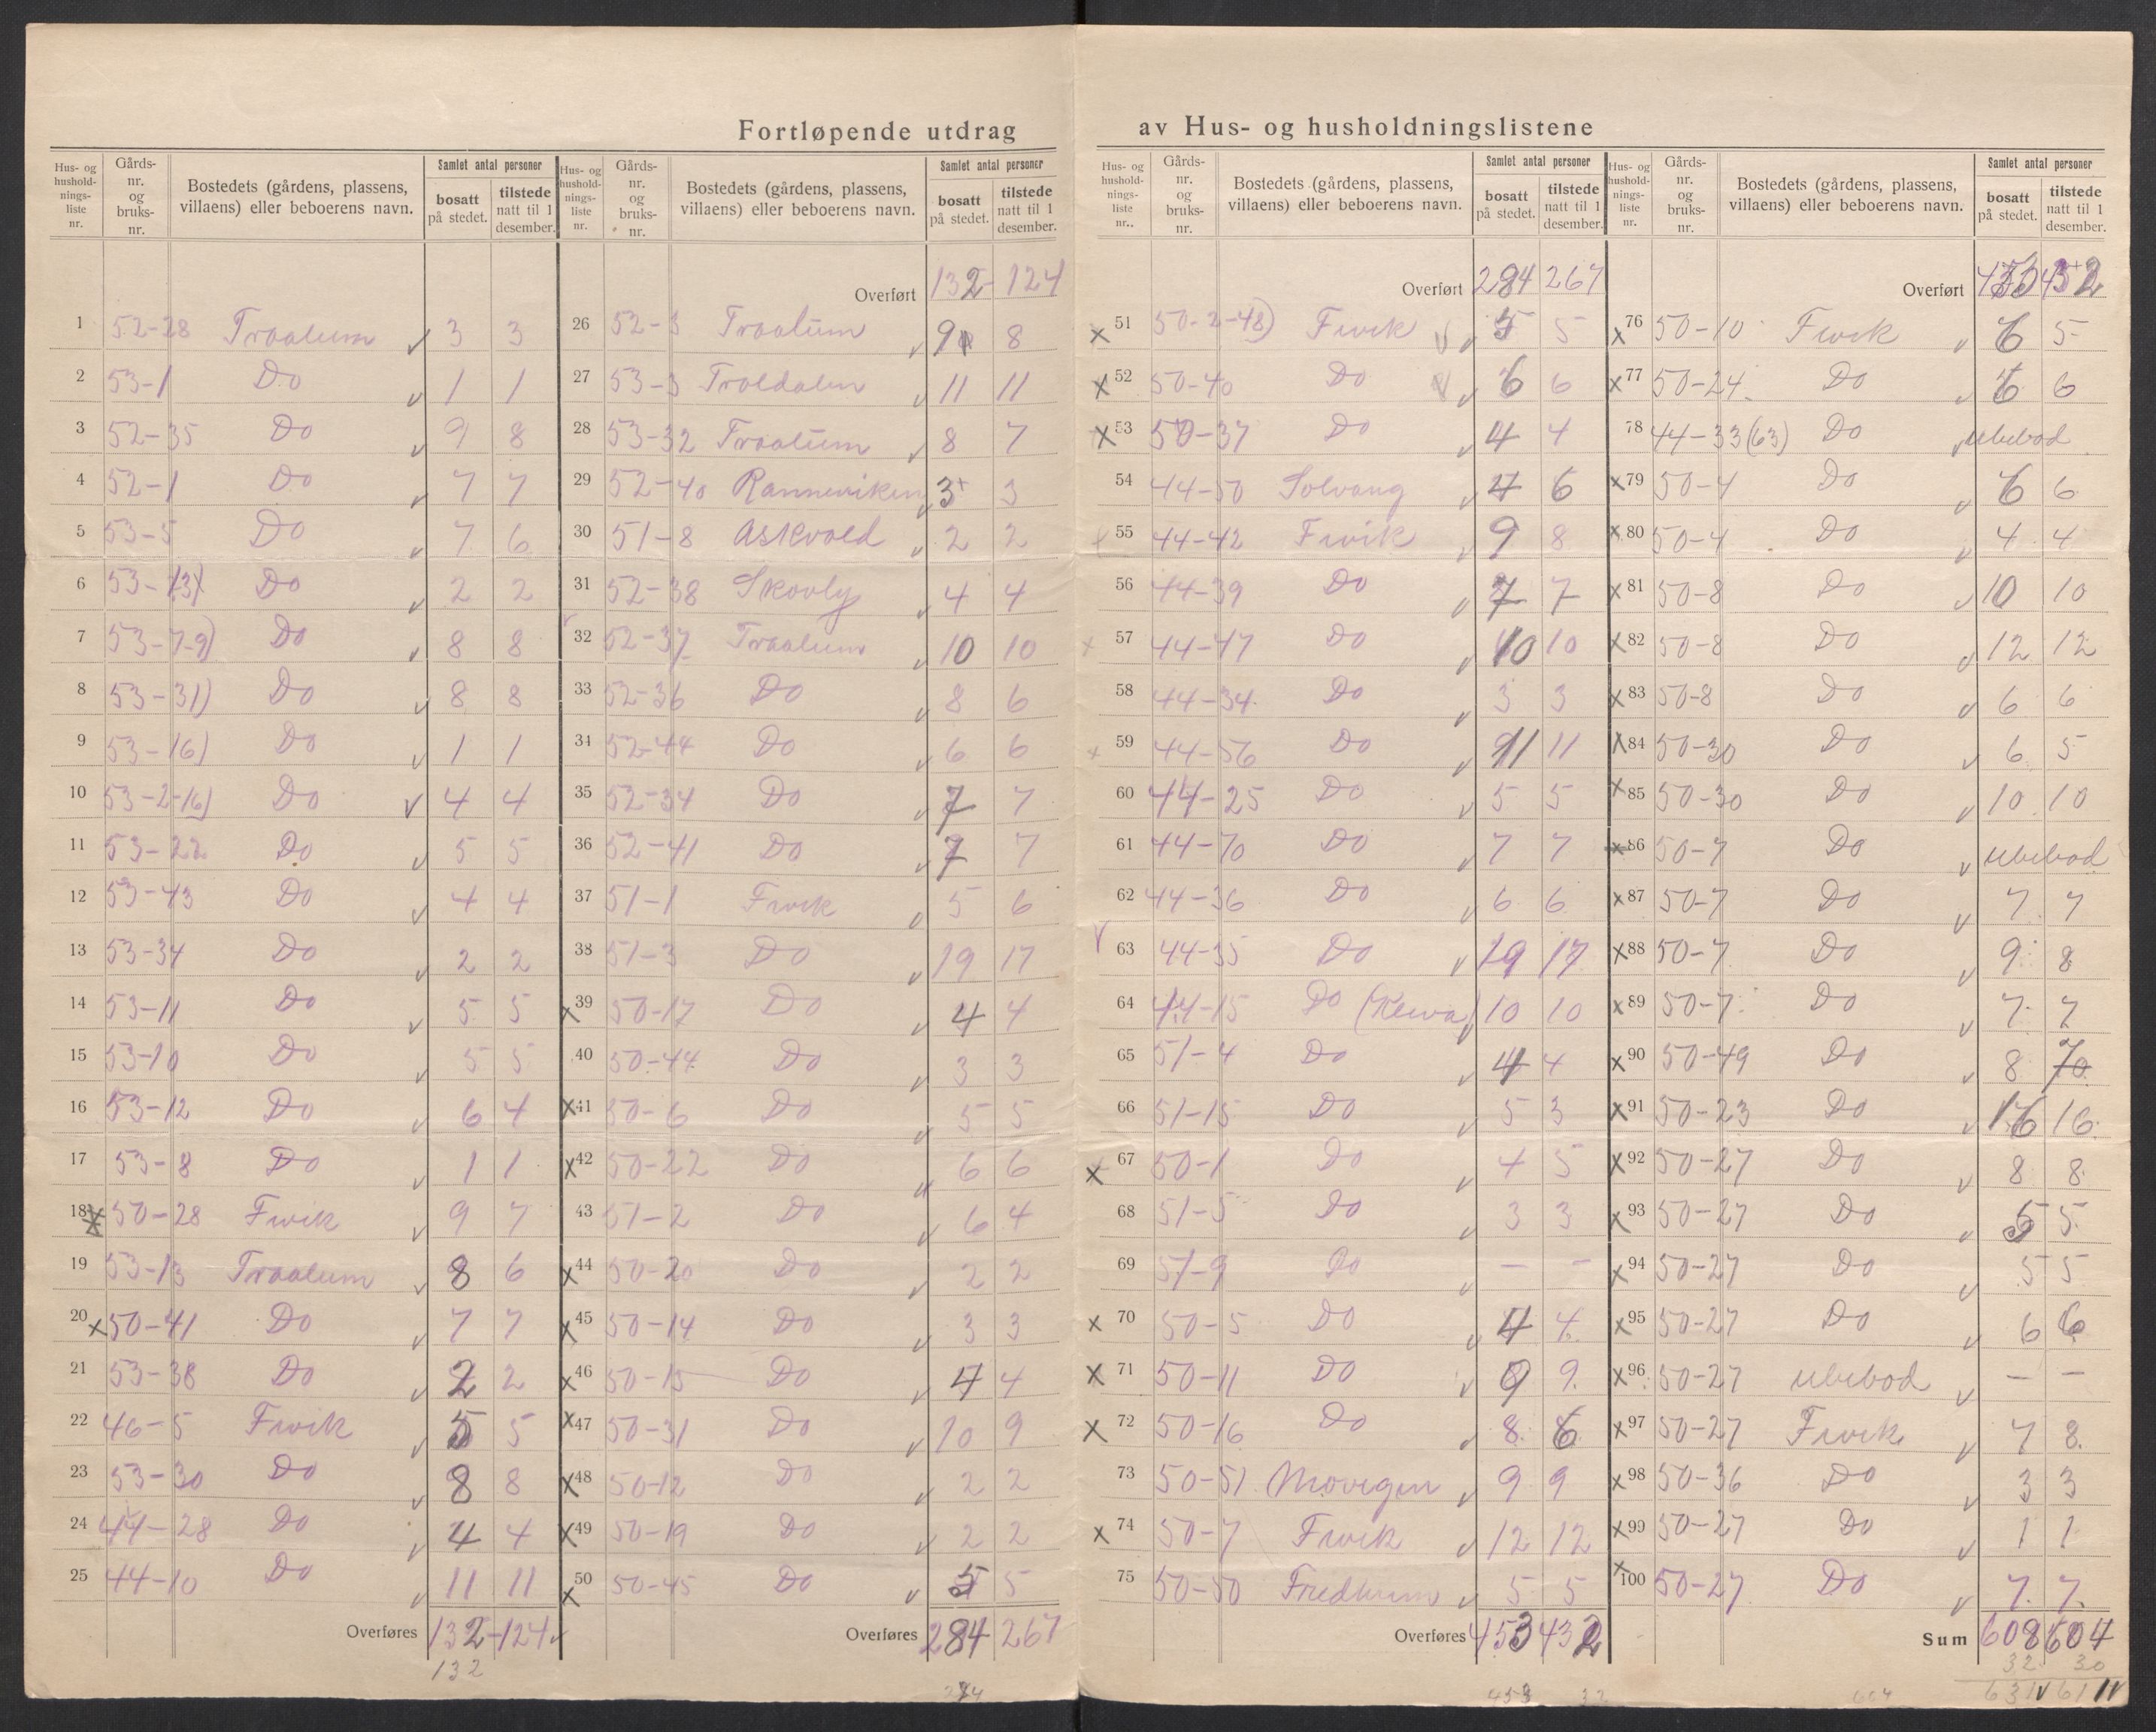 Fortløpende utdrag av Hus- og husholdningslistene
Hus- og husholdnings-liste nr. | Gårds-nr. og bruks-nr. | Bostedets (gårdens, plassens, villaens) eller beboerens navn. | Samlet antal personer | bosatt på stedet. | tilstede natt til 1 desember.
1 52-28 Traalum 3 3
2 53-1 Do 1 1
3 52-35 Do 9 8
4 52-1 Do 7 7
5 53-5 Do 7 6
6 53- Do 2 2
7 53-7-9) Do 8 8
8 53-31) Do 8 8
9 53-16) Do 1 1
10 53-2-16) Do 4 4
11 53-22 Do 5 5
12 53-43 Do 4 4
13 53-34 Do 2 2
14 53-11 Do 5 5
15 53-10 Do 5 5
16 53-12 Do 6 4
17 53-8 Do 1 1
18 x 50-28 Fivik 9 7
19 53-13 Traalum 8 6
20 x 50-41 Do 7 7
21 53-38 Do 2 2
22 46-5 Fivik 5 5
23 53-30 Do 8 8
24 44-28 Do 4 4
25 44-10 Do 11 11
Overføres 132-124
132
Hus- og husholdnings-liste nr. | Gårds-nr. og bruks-nr. | Bostedets (gårdens, plassens, villaens) eller beboerens navn. | Samlet antal personer | bosatt på stedet. | tilstede natt til 1 desember.
Overført 132-124
26 52-3 Traalum 9 8
27 53-3 Troldalen 11 11
28 53-32 Traalum 8 7
29 52-40 Ranneviken 3 3
30 51-8 Askvold 2 2
31 52-38 Skovly 4 4
32 52-37 Traalum 10 10
33 52-36 Do 8 6
34 52-44 Do 6 6
35 52-34 Do 7 7
36 52-41 Do 7 7
37 51-1 Fivik 5 6
38 51-3 Do 19 17
x 39 50-17 Do 4 4
40 50-44 Do 3 3
x 41 50-6 Do 5 5
x 42 50-22 Do 6 6
43 51-2 Do 6 4
x 44 50-20 Do 2 2
x 45 50-14 Do 3 3
x 46 50-15 Do 4 4
x 47 50-31 Do 10 9
x 48 50-12 Do 2 2
x 49 50-19 Do 2 2
x 50 50-45 Do 5 5
Overføres 284 267
Hus- og husholdnings-liste nr.. | Gårds-nr. og bruks-nr. | Bostedets (gårdens, plassens, villaens) eller beboerens navn. | Samlet antal personer | bosatt på stedet. | tilstede natt til 1 desember.
Overført 284 267
x 51 50-2-48) Fivik 5 5
x 52 50-40 Do 6 6
x 53 50-37 Do 4 4
54 44-50 Solvang 7 6
55 44-42 Fivik 9 8
56 44-39 Do 7 7
57 44-47 Do 10 10
58 44-34 Do 3 3
59 44-56 Do 11 11
60 44-25 Do 5 5
61 44-70 Do 7 7
62 44-36 Do 6 6
63 44-35 Do 19 17
64 44-15 Do 10 10
65 51-4 Do 4 4
66 51-15 Do 5 3
x 67 50-1 Do 4 5
68 51-5 Do 3 3
69 51-9 Do — —
x 70 50-5 Do 4 4
x 71 50-11 Do 9 9
x 72 50-16 Do 8 6
73 50-51 Movigen 9 9
x 74 50-7 Fivik 12 12
75 50-50 Fredheim 5 5
Overføres 453 432
453 32
Hus- og husholdnings-liste nr. | Gårds-nr. og bruks-nr. | Bostedets (gårdens, plassens, villaens) eller beboerens navn. | Samlet antal personer | bosatt på stedet. | tilstede natt til 1 desember.
Overført
x 76 50-10 Fivik 6 5
x 77 50-24 Do 6 6
78 44-33(63) Do ubebod
x 79 50-4 Do 6 6
x 80 50-4 Do 4 4
x 81 50-8 Do 10 10
x 82 50-8 Do 12 12
x 83 50-8 Do 6 6
x 84 50-30 Do 6 5
x 85 50-30 Do 10 10
x 86 50-7 Do ubebod
x 87 50-7 Do 7 7
x 88 50-7 Do 9 8
x 89 50-7 Do 7 7
x 90 50-49 Do 8 70
x 91 50-23 Do 16 16
x 92 50-27 Do 8 8
x 93 50-27 Do 5 5
x 94 50-27 Do 5 5
x 95 50-27 Do 6 6
x 96 50-27 ubebod — —
x 97 50-27 Fivik 7 8
x 98 50-36 Do 3 3
x 99 50-27 Do 1 1
x 100 50-27 Do 7 7
Sum 608 604
32 30
604 631 611